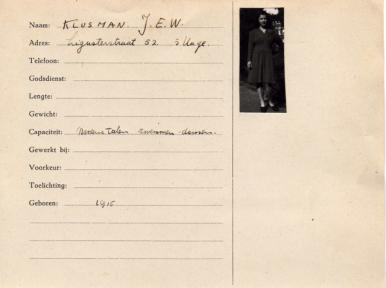 Naam: KLUSMAN. J.E.W.
Adres: Ligusterstraat 52 's Hage.
Telefoon:
Godsdienst:
Lengte:
Gewicht:
Capaciteit: Moderne Talen zwemmen - dansen.
Gewerkt bij:
Voorkeur:
Toelichting:
Geboren: 1915